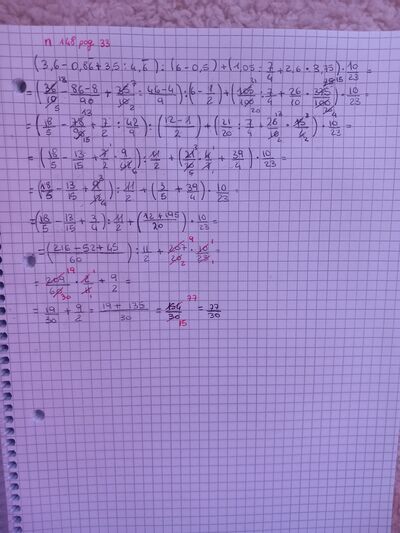 n 148 pag 33
(3,6-0,86+3,5:4,6):(6-0,5)+(1,05:7/4+2,6·3,75)·10/23=
=(36/10-86-8/90+35/10:46-4/9):(6-1/2)+(105/100:7/4+26/10·375/100)·10/23=
=(18/5-78/90+7/2:42/9):(12-1/2)+(21/20:7/4+26/10·15/4)·10/23=
=(18/5-13/15+7/2·9/42):11/2+(21/20·4/7+39/4)·10/23=
=(18/5-13/15+9/12):11/2+(3/5+39/4)·10/23=
=(18/5-13/15+3/4):11/2+(12+195/20)·10/23=
=(216-52+45/60):11/2+207/20·10/23=
=209/60·2/11+9/2=
=19/30+9/2=19+135/30=154/30=77/30